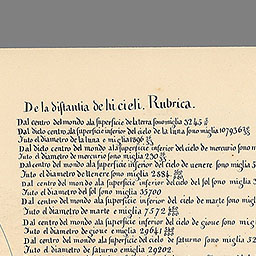 De la distantia de hi cieli. Rubrica.
Dal centro del mondo ala superficie dela terra sono miglia 3245
Dal dicto centro ala superficie inferior del cielo de la luna sono miglia 107936
Tuto el diametro de la luna e miglia 1896
Dal dicto centro del mondo ala superficie inferior del cielo de mercurio sono
Tuto el diametro de mercurio sono miglia 230
Dal centro del mondo ala superficie inferior del cielo de uenere sono miglia
Tuto el diametro de Uenere sono miglia 2884
Dal centro del mondo ala superficie inferior delcielo del sol sono miglia 3
Tuto el diametro del sol sono miglia 35700
Dal centro del mondo ala superficie inferior del cielo de marte sono
Tuto el diametro de marte e miglia 7572
Dal centro del mondo ala superficie inferior del cielo de gioue sono
Tuto el diametro de gioue e miglia 29641
Dal centro del mondo ala superficie inferior del cielo de saturno sono miglia 52
Tuto el diametro de saturno e miglia 29202